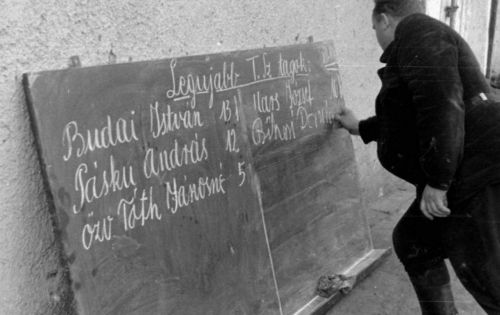 Legujabb T.sz tagok:
Budai István 13
Pásku András 12
özv Tóth Jánosné 5
József
Bihari